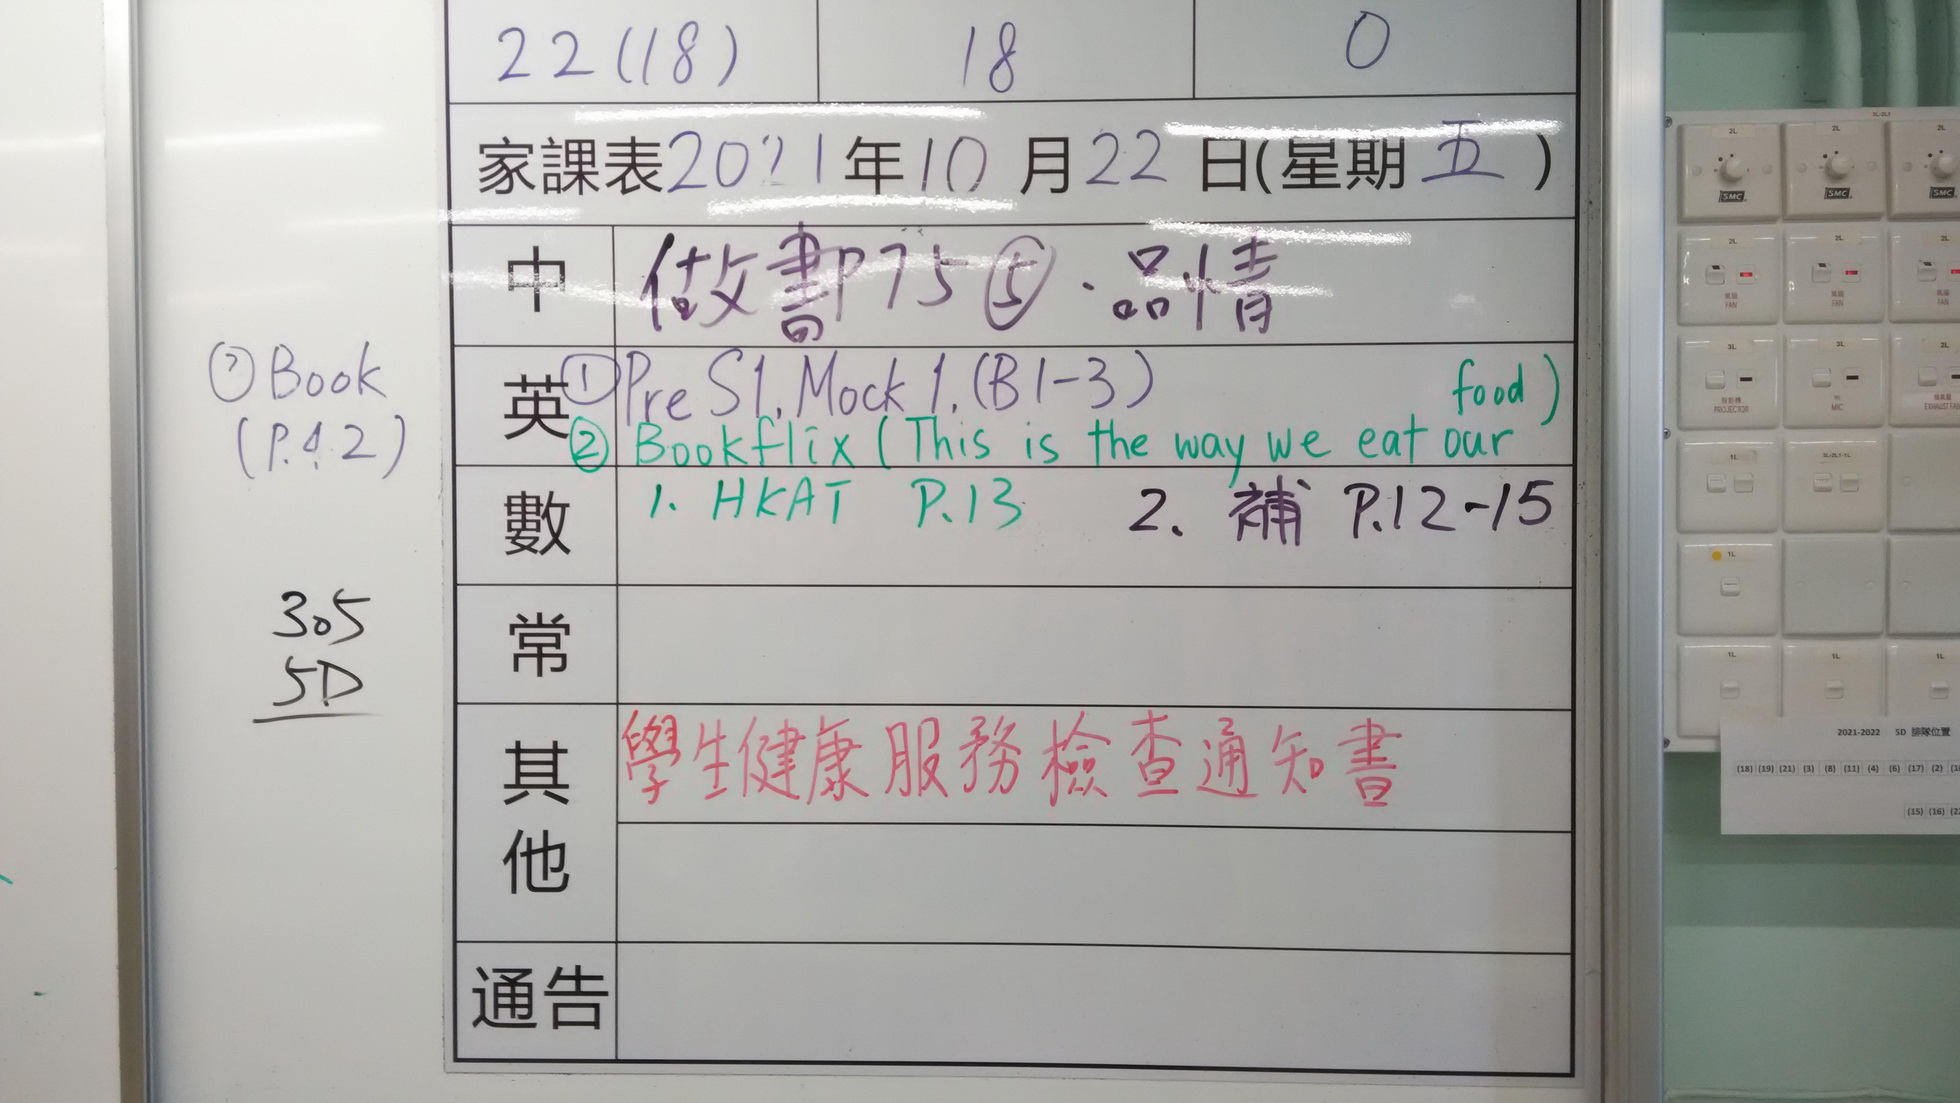 22(18) 18 0
家課表2021年10月22日(星期五)
中 做書P75⑤·品情
英 ①Pre S1. Mock 1. (B1-3)
②Bookflix (This is the way we eat our food)
數 1. HKAT P.13 2. 補 P.12-15
常
其他 學生健康服務檢查通知書
通告
Book
(P.42)
305
5D
2L 2L 2L
SMC SMC SMC
2L 2L 2L
風扇 FAN 風扇 FAN 風扇 FAN
3L 3L 2L
投影機 PROJECTOR MIC EXHAUST FAN
1L 3L-2L1-1L
1L
1L 1L 1L
2021-2022 5D 排隊位置
(18) (19) (21) (3) (8) (11) (4) (6) (17) (2)
(15) (16)